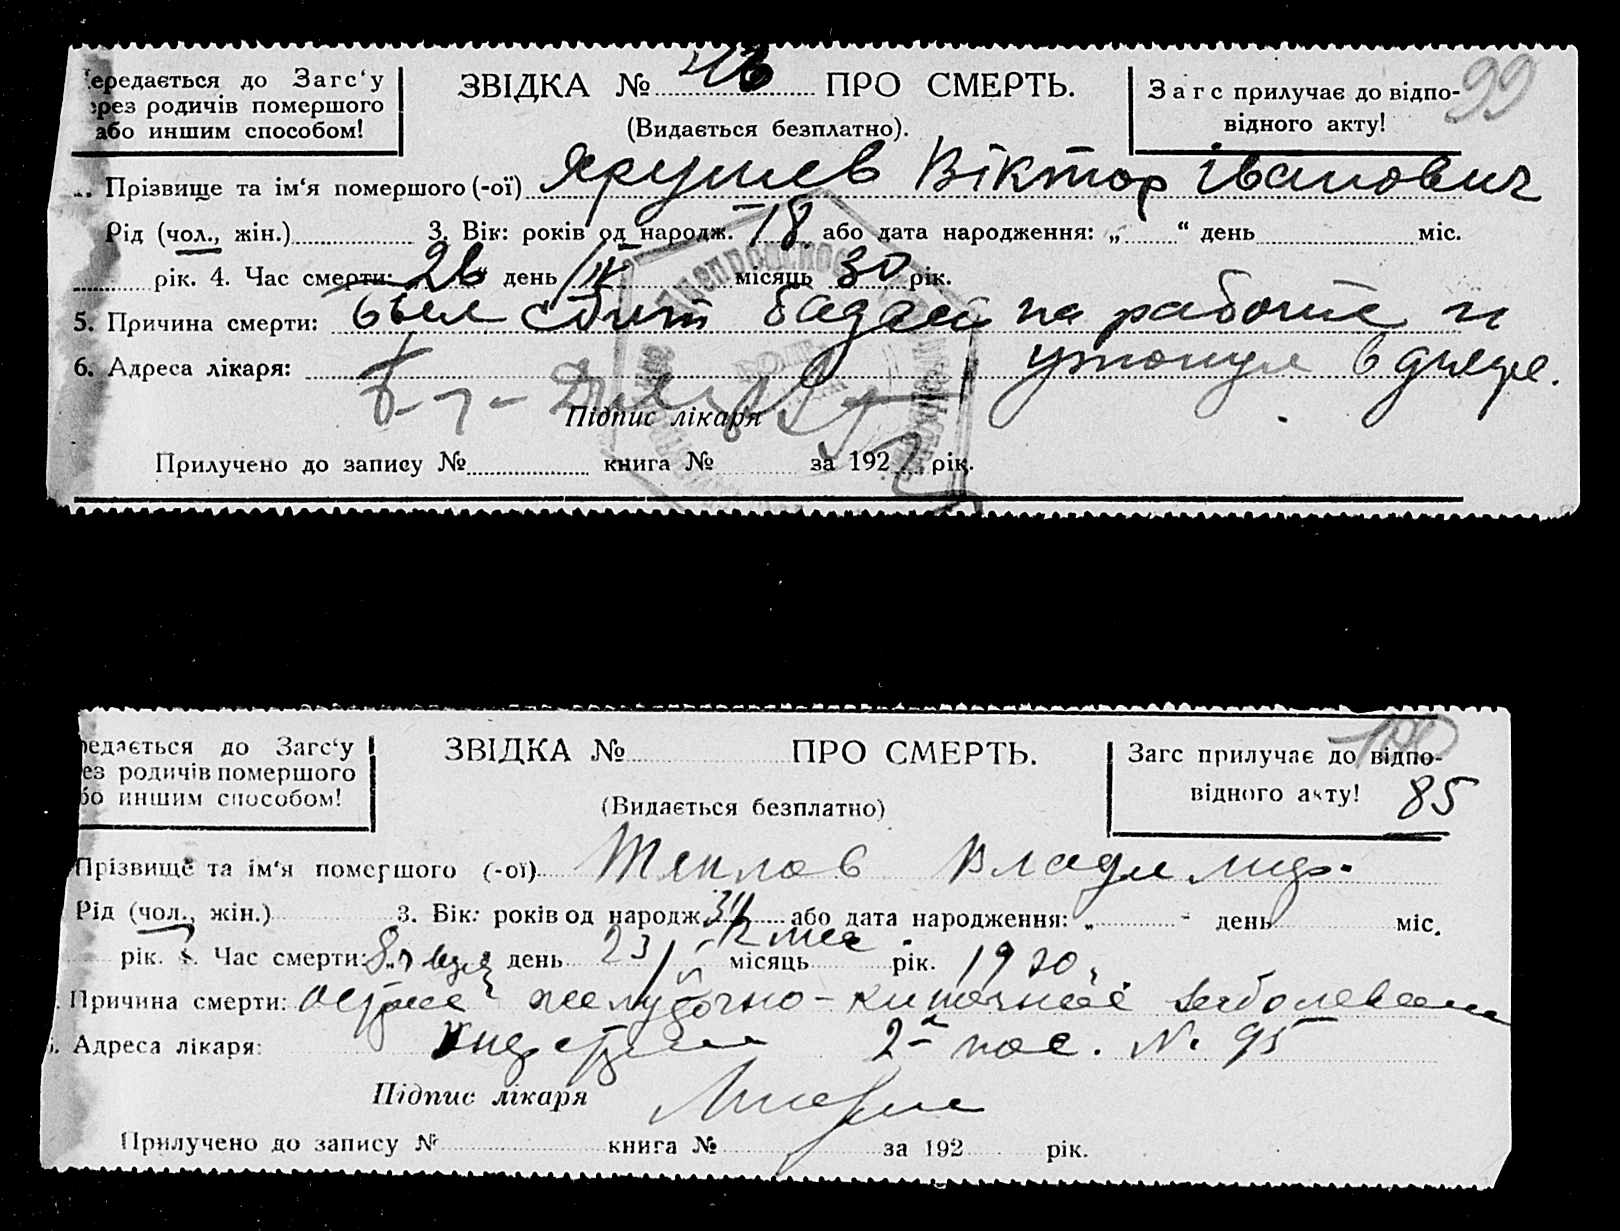 ередається до Загс‘у
рез родичів помершого
або иншим способом!
ЗВІДКА № ПРО СМЕРТЬ.
(Видається безплатно).
Загс прилучає до відпо-
відного акту!
99
Прізвище та ім‘я помершого (-ої) Ярушев Віктор Іванович
Рід (чол., жін.) 3. Вік: років од народж. 18 або дата народження: „ “ день міс.
рік. 4. Час смерти: 26 день IV місяць 30 рік.
5. Причина смерти: был сбит бадьей на работе и
утонул в Днепре.
6. Адреса лікаря:
Підпис лікаря
Прилучено до запису № книга № за 192 рік.
едається до Загс‘у
ез родичів помершого
бо иншим способом!
ЗВІДКА № ПРО СМЕРТЬ.
(Видається безплатно)
100
Загс прилучає до відпо-
відного акту!
85
Прізвище та ім‘я помершого (-ої) Теплов Владимир.
Рід (чол., жін.) 3. Вік: років од народж. або дата народження: „ день міс.
рік. Час смерти: день 23 місяць рік. 1930
Причина смерти: Острое желудочно-кишечное заболевание
Адреса лікаря: 2-й пос. № 95
Підпис лікаря
Прилучено до запису № книга № за 192 рік.